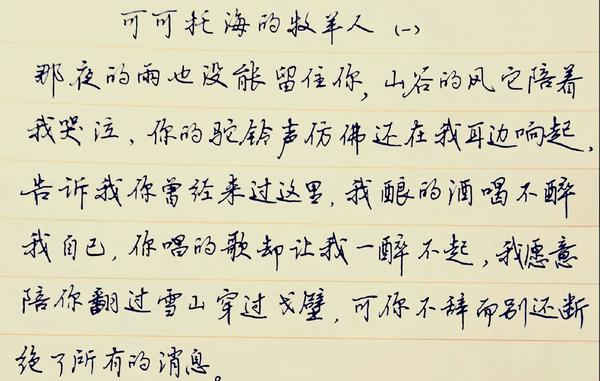 可可托海的牧羊人 (一)
那夜的雨也没能留住你,山谷的风它陪着
我哭泣,你的驼铃声仿佛还在我耳边响起,
告诉我你曾经来过这里,我酿的酒喝不醉
我自己,你唱的歌却让我一醉不起,我愿意
陪你翻过雪山穿过戈壁,可你不辞而别还断
绝了所有的消息。